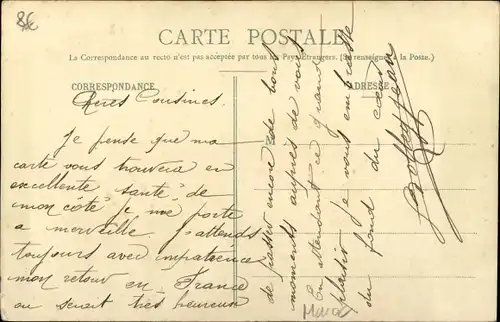 8€
CARTE POSTALE
La Correspondance au recto n'est pas acceptée par tous les Pays Étrangers. (Se renseigner à la Poste.)
CORRESPONDANCE
ADRESSE
Chères Cousines.
Je pense que ma
carte vous trouvera en
excellente santé, de
mon côté Je me porte
a merveille. J'attends
toujours avec impatience
mon retour en France
ou serait très heureux
de passer encore de bons
moments auprès de vous
En attendant ce grand
plaisir Je vous embrasse
du fond du coeur
Jean
Maroc